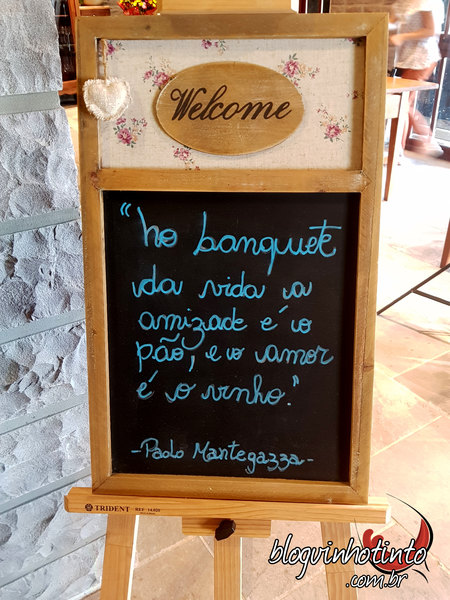 Welcome
"No banquete
da vida a
amizade é o
pão, e o amor
é o vinho."
-Paolo Mantegazza-
TRIDENT REF: 14.020
bloguinhotinto
.com.br